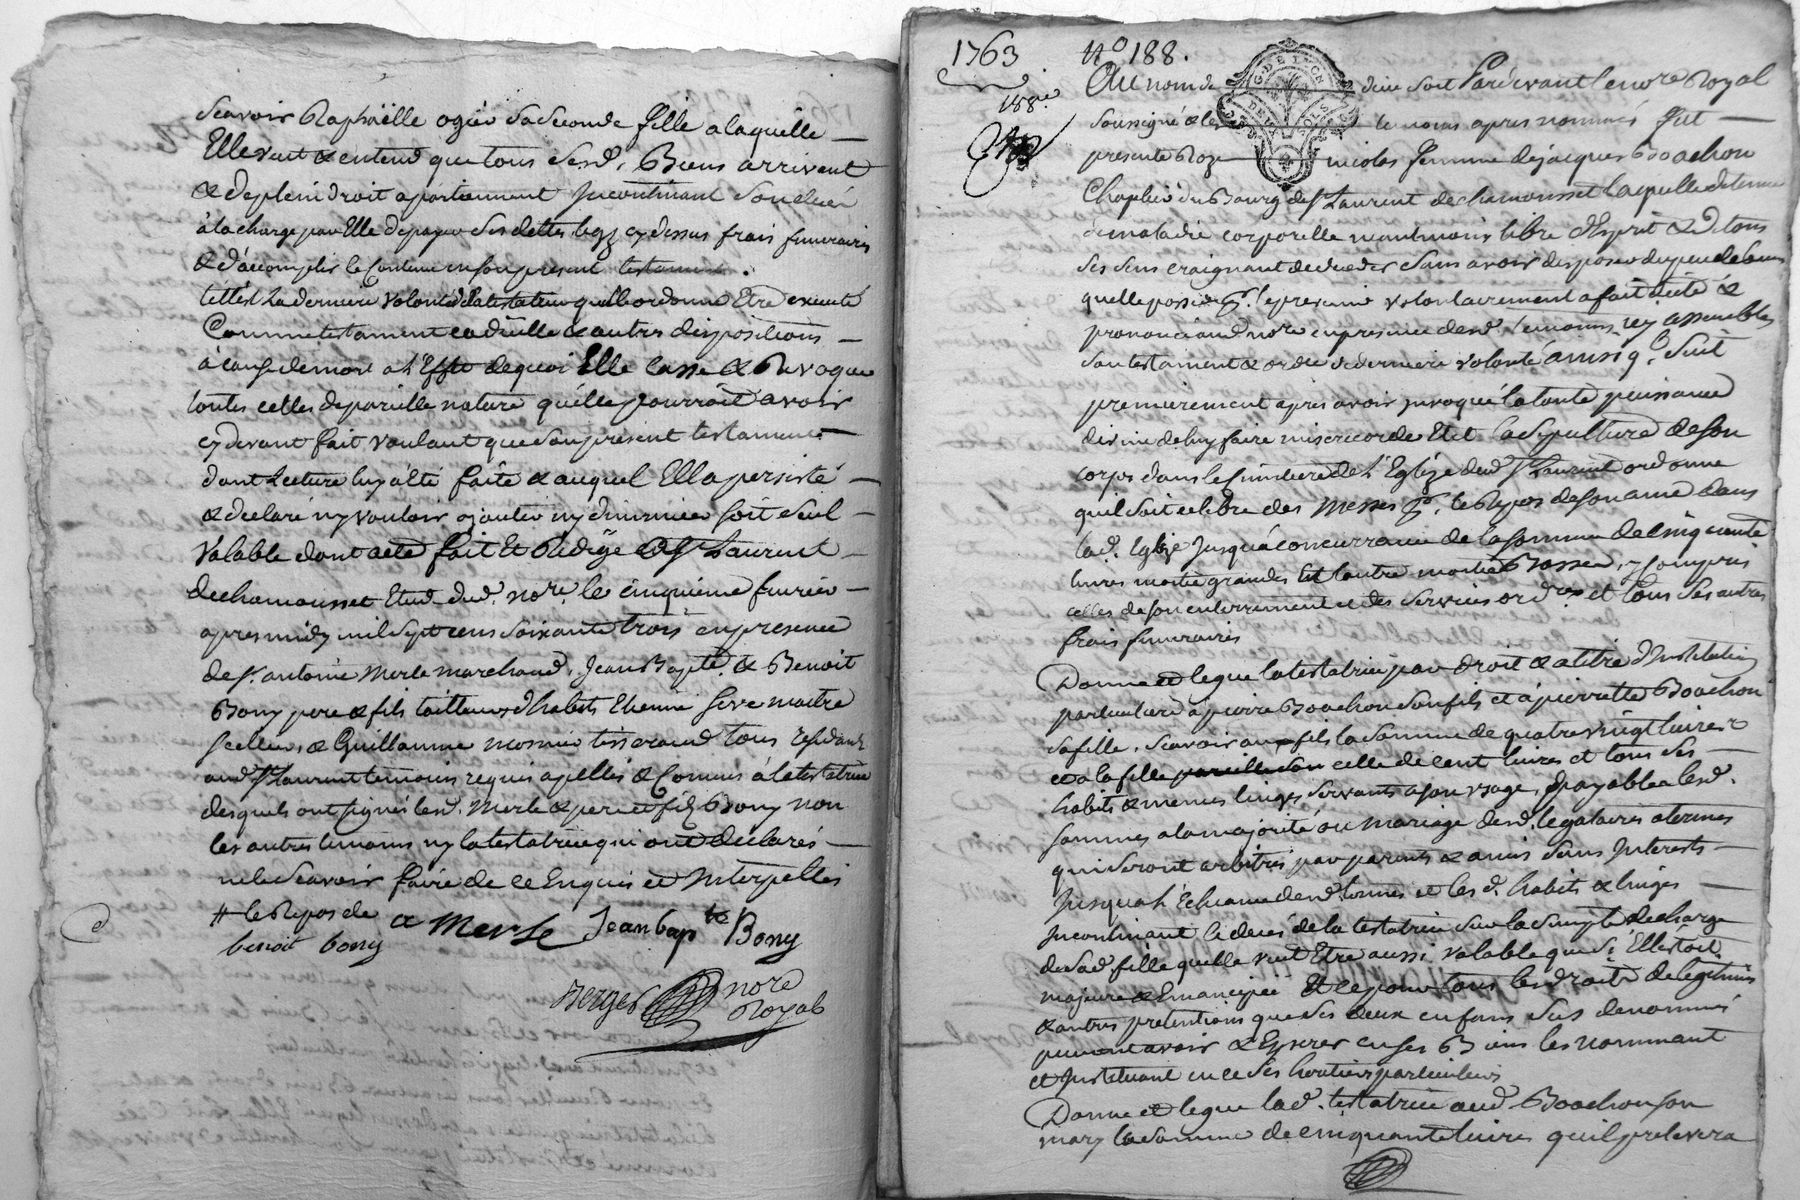 Scavoir Raphaëlle ogier sa seconde fille a laquelle
Elle veut & entend que tous sesd. Biens arrivent
& de plein droit apartiennent Incontinant son decès
à la charge par Elle de payer ses dettes legz cy dessus frais funeraires
& d'accomplir le Contenu en son present testament.
telle est La derniere volonté de la testatrice quelle ordonne Etre executé
Comme testament codicille & autres dispositions
à cause de mort a l'Effet de quoi Elle casse & Revoque
toutes celles de pareille nature quelle pourroit avoir
cy devant fait voulant que son present testament
dont Lecture luy a été faite & auquel Ell a persisté
& declaré ny vouloir ajouter ny diminuer soit seul
Valable dont acte fait Et Redigé a St Laurent
de chamousset Etude dud. nore. le cinquieme fevrier
apres midy mil sept cens soixante trois en presence
de sr. antoine Merle marchand, Jean Bapte. & Benoit
Bony pere & fils tailleurs d'habits Etienne seve maitre
sellier, & Guillaume mosnier tisserand tous residants
aud. St Laurent temoins requis apellés & Connus à la testatrice
desquels ont signé lesd. Merle & pere et fils Bony non
les autres temoins ny la testatrice qui ont declarés
ne le scavoir faire de ce Enquis et Interpellés
# le Repos de a Merle Jean bapte Bony
benoit bony
Berger nore
Royal
1763 No. 188.
188e
Au nom de dieu soit Pardevant le nore Royal
soussigné & les temoins apres nommés fut
presente Roze nicolas femme de jacques Boachon
Chapelier du Bourg de St Laurent de chamousset laquelle detenue
de maladie corporelle neantmoins libre d'Esprit & de tous
ses sens craignant de deceder sans avoir disposer du peu de biens
quelle possede pr. le present volontairement a fait dicté &
prononcé aud. nore en presence desd. temoins icy assemblés
son testament & ordce. de derniere volonté ainsi q. suit
premierement apres avoir invoqué la toute puissance
divine de luy faire misericorde Elit la sepulture de son
corps dans le cimetiere de l'Eglize dud. St Laurent ordonne
quil soit celebre des Messes pr. le Repos de son ame dans
lad. Eglize jusqua concurrance de la somme de cinquante
livres moitié grandes Et l'autre moitié Basses, y compris
celles de son enterrement et des services ordres et tous ses autres
frais funeraires
Donne et legue la testatrice par droit & a titre d'Institution
particuliere à pierre Boachon son fils et à pierrette Boachon
sa fille, Scavoir au fils la somme de quatre vingt livres
et a la fille celle de cent livres et tous ses
habits & menues linges servants a son usage, payable lesd.
sommes a la majorité ou Mariage desd. legataires a termes
qui seront arbitrés par parents & amis sans Interests
Jusqua l'Echeance desd. termes et lesd. habits & linges
Incontinant le decés de la testatrice sur la simple decharge
de sad. fille quelle veut Etre aussi valable que si Elle étoit
majeure & Emancipée Et ce pour tous les droits de legitimes
& autres pretentions que ses deux enfans sus denommés
peuvent avoir & Esperer en ses Biens les nommant
et Instituant en ce ses heritiers particuliers
Donne et legue lad. testatrice aud. Boachon son
mary la somme de cinquante livres quil prelevera